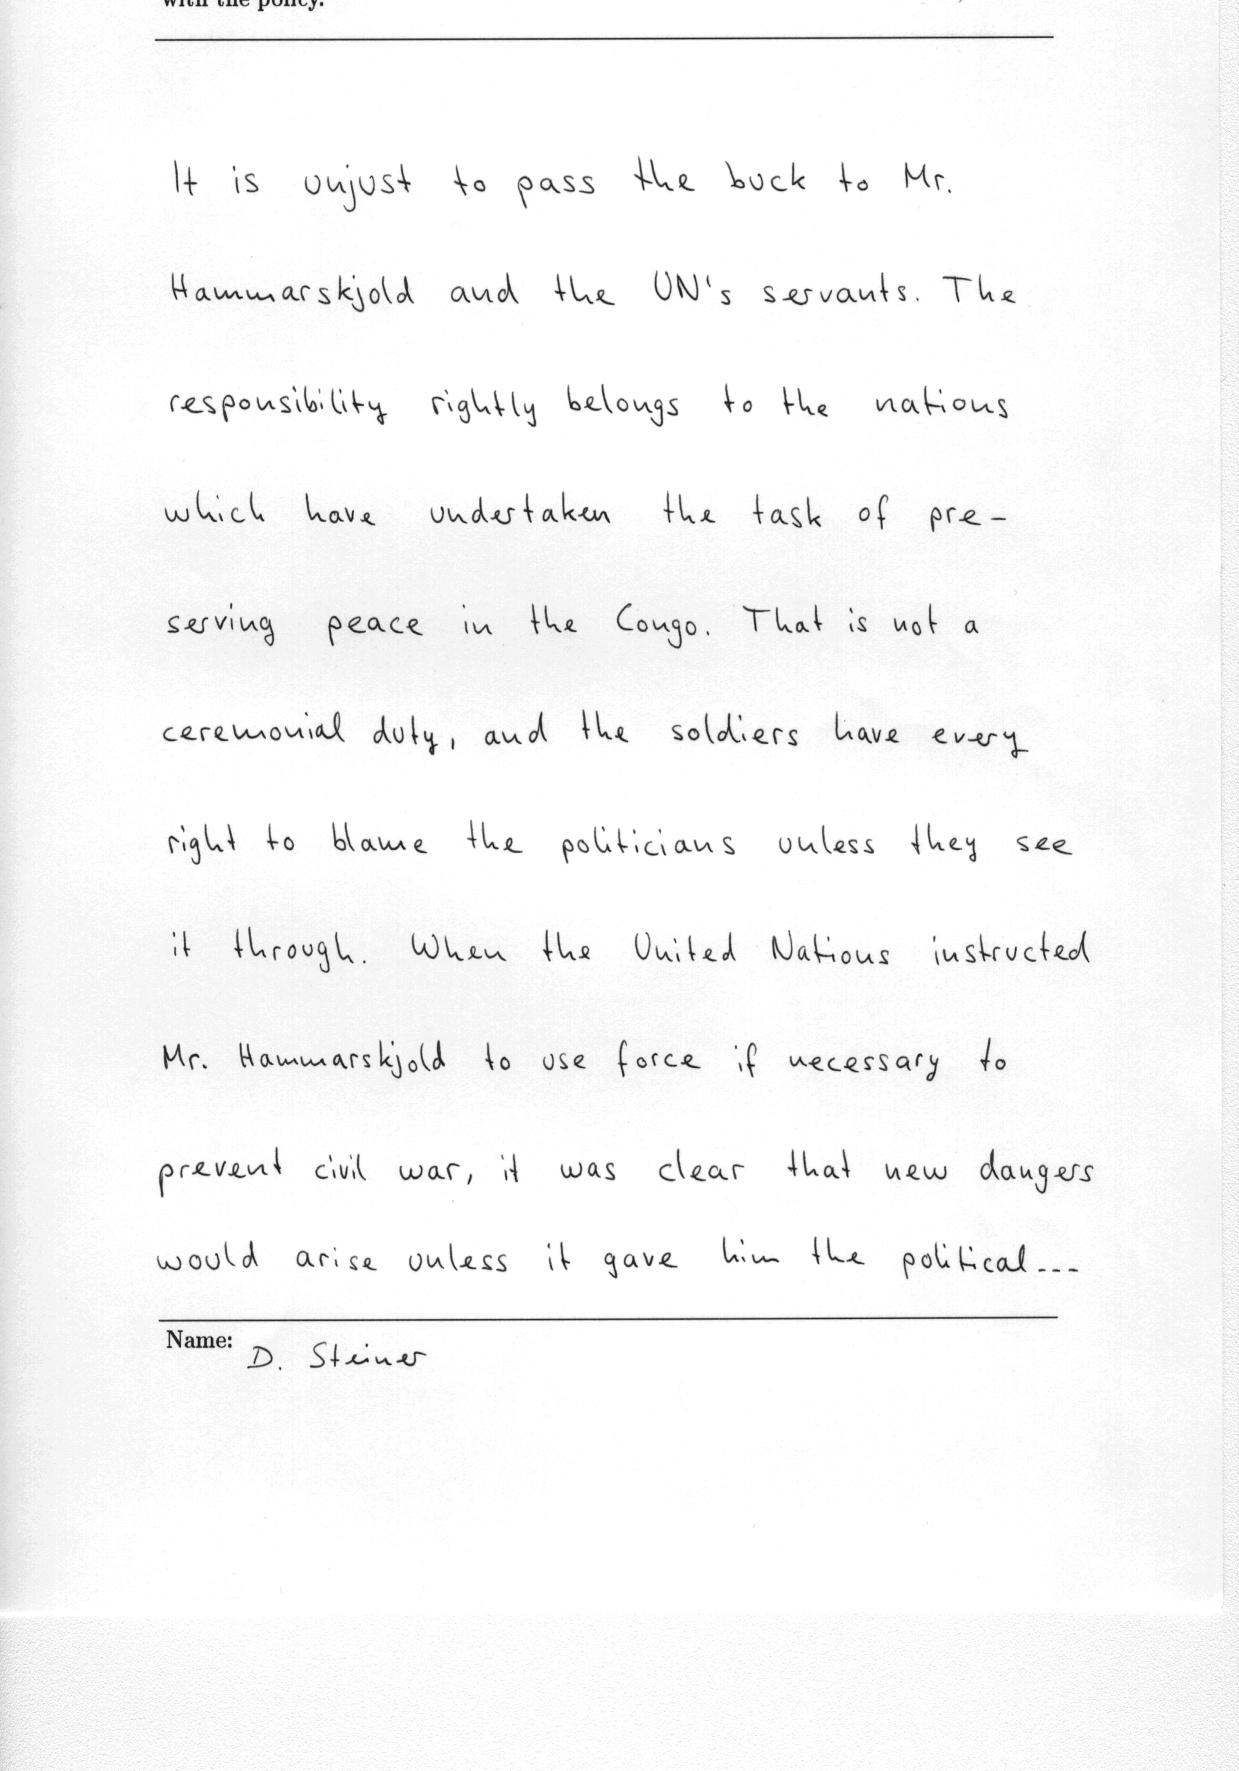 with the policy.
It is unjust to pass the buck to Mr.
Hammarskjold and the UN's servants. The
responsibility rightly belongs to the nations
which have undertaken the task of pre-
serving peace in the Congo. That is not a
ceremonial duty, and the soldiers have every
right to blame the politicians unless they see
it through. When the United Nations instructed
Mr. Hammarskjold to use force if necessary to
prevent civil war, it was clear that new dangers
would arise unless it gave him the political...
Name: D. Steiner